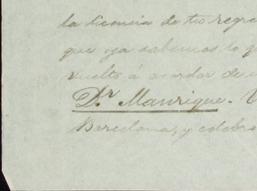 la licencia de tu regre
que ya sabemos lo q
vuelto á acordar de
Dr Manrique.
Barcelona, y celebra